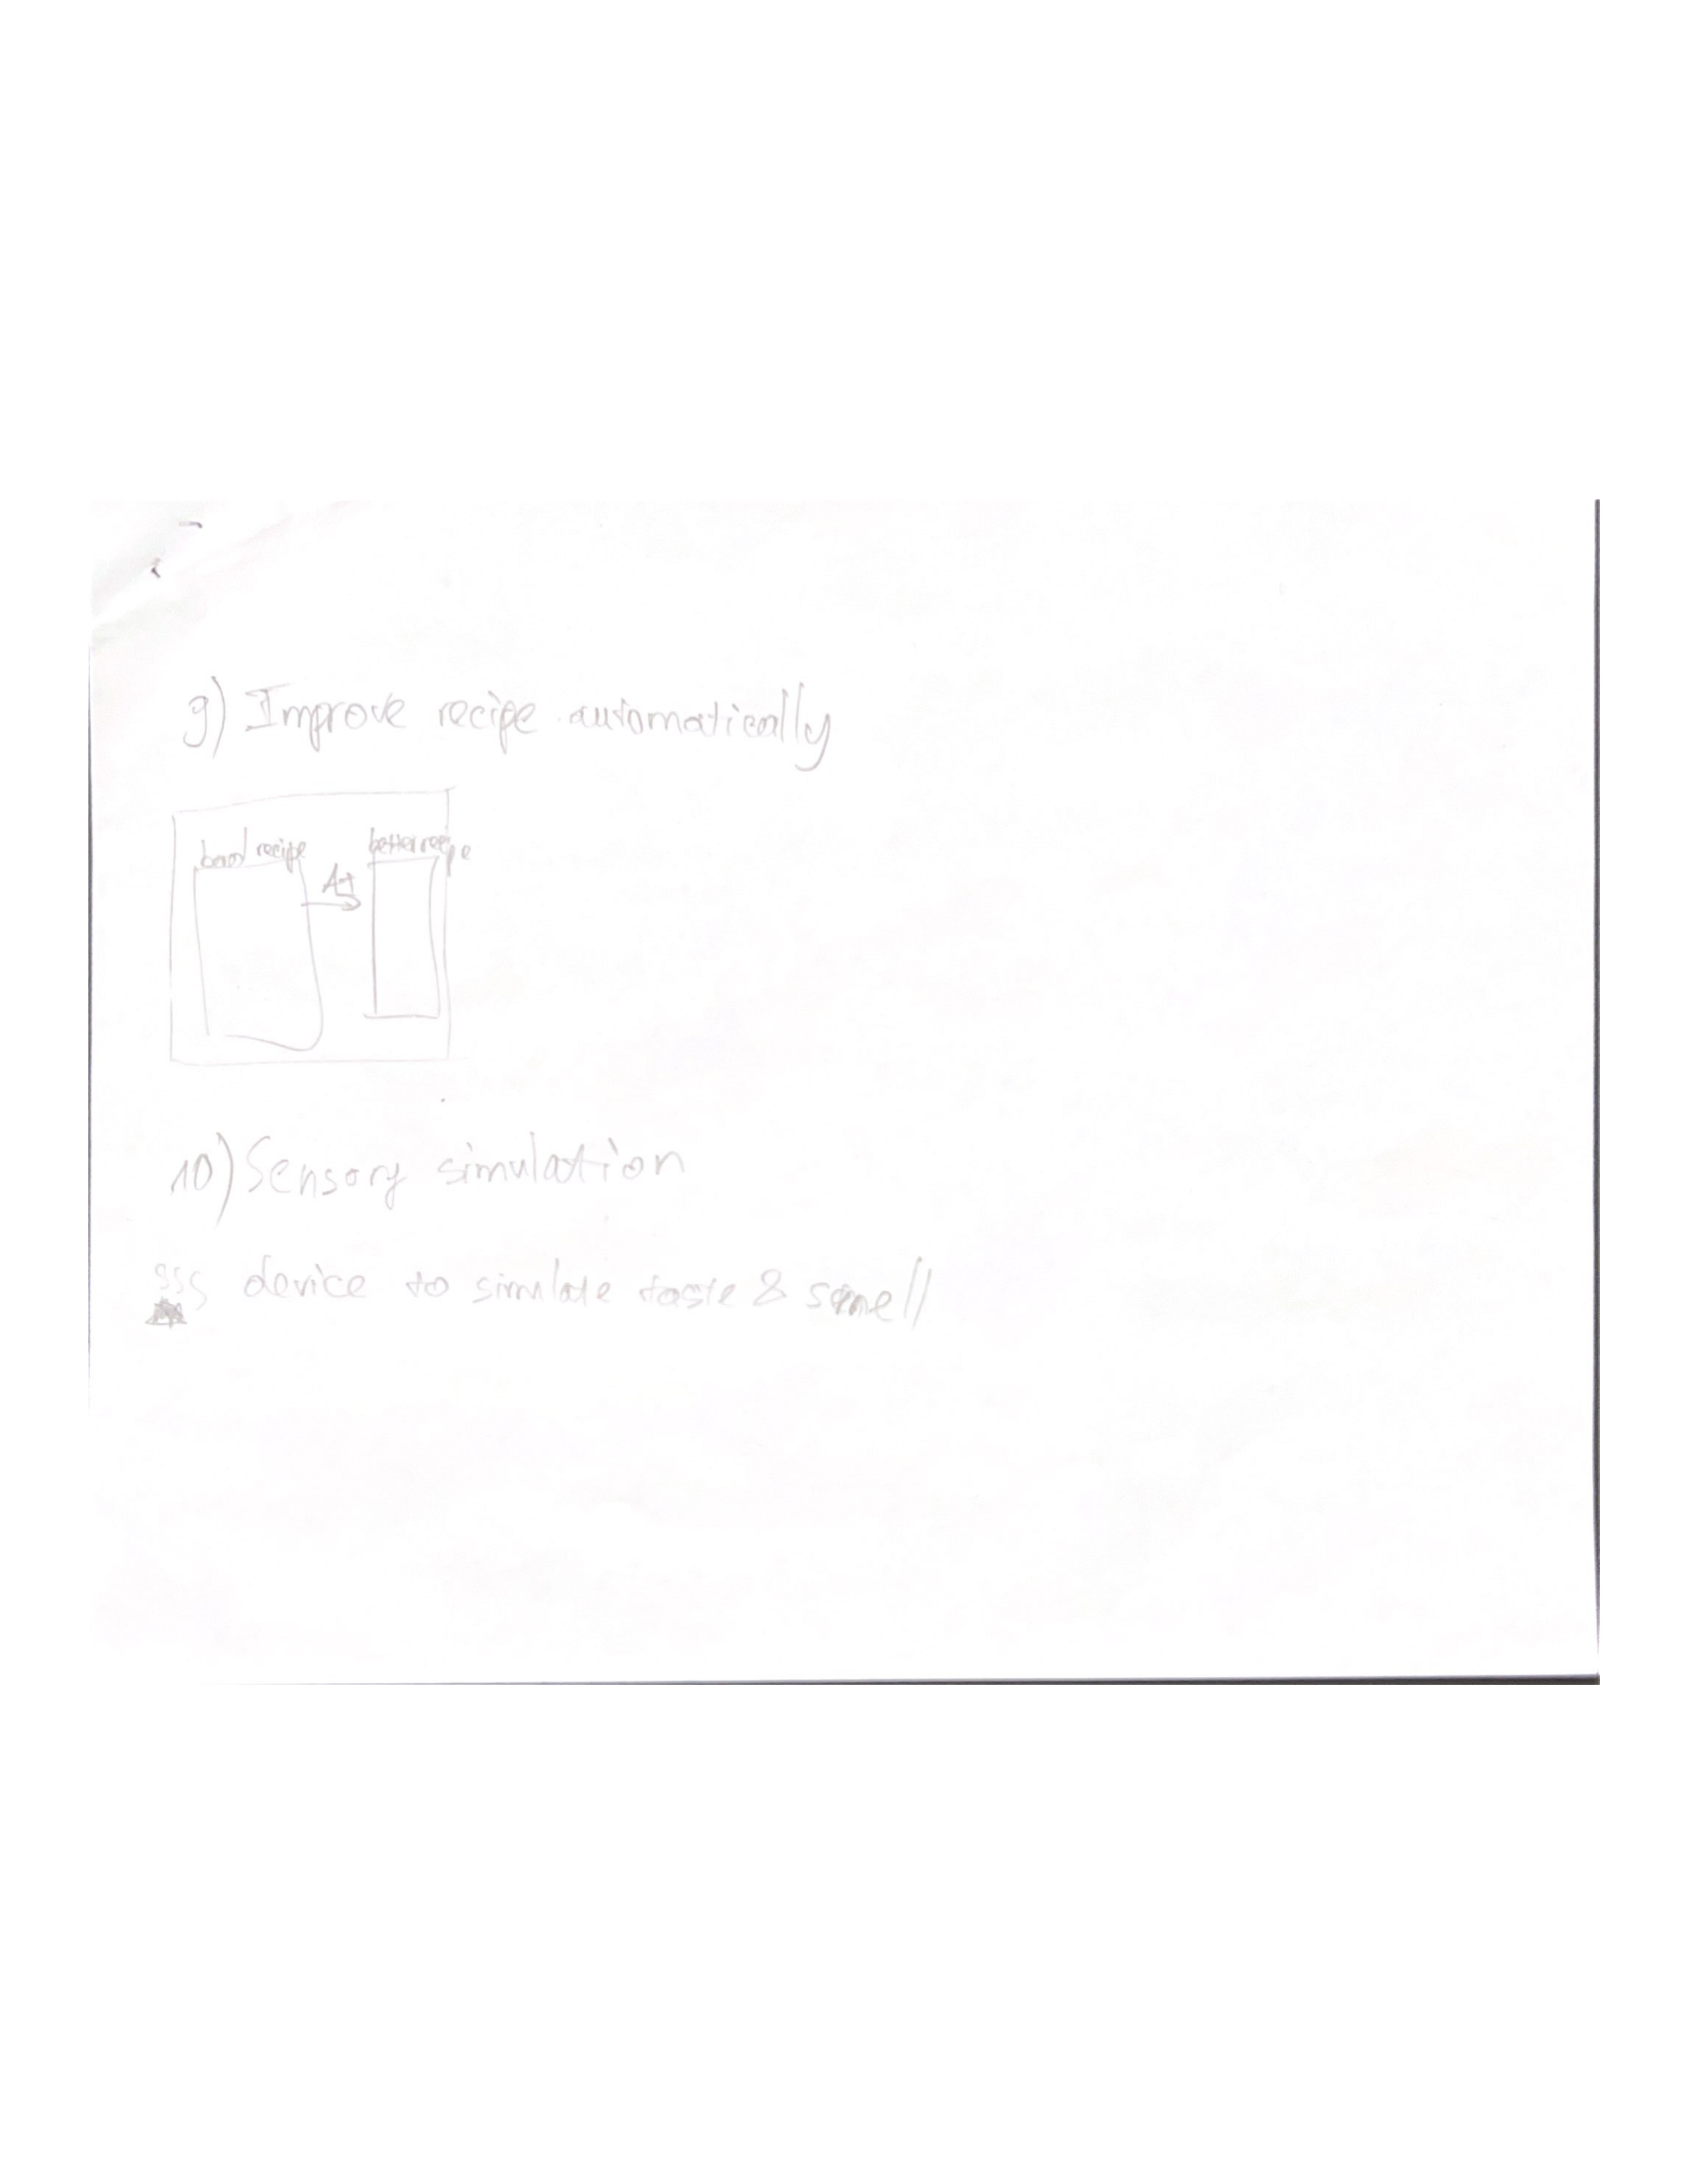 9) Improve recipe automatically
bad recipe
AI
better recipe
10) Sensory simulation
device to simulate taste & smell